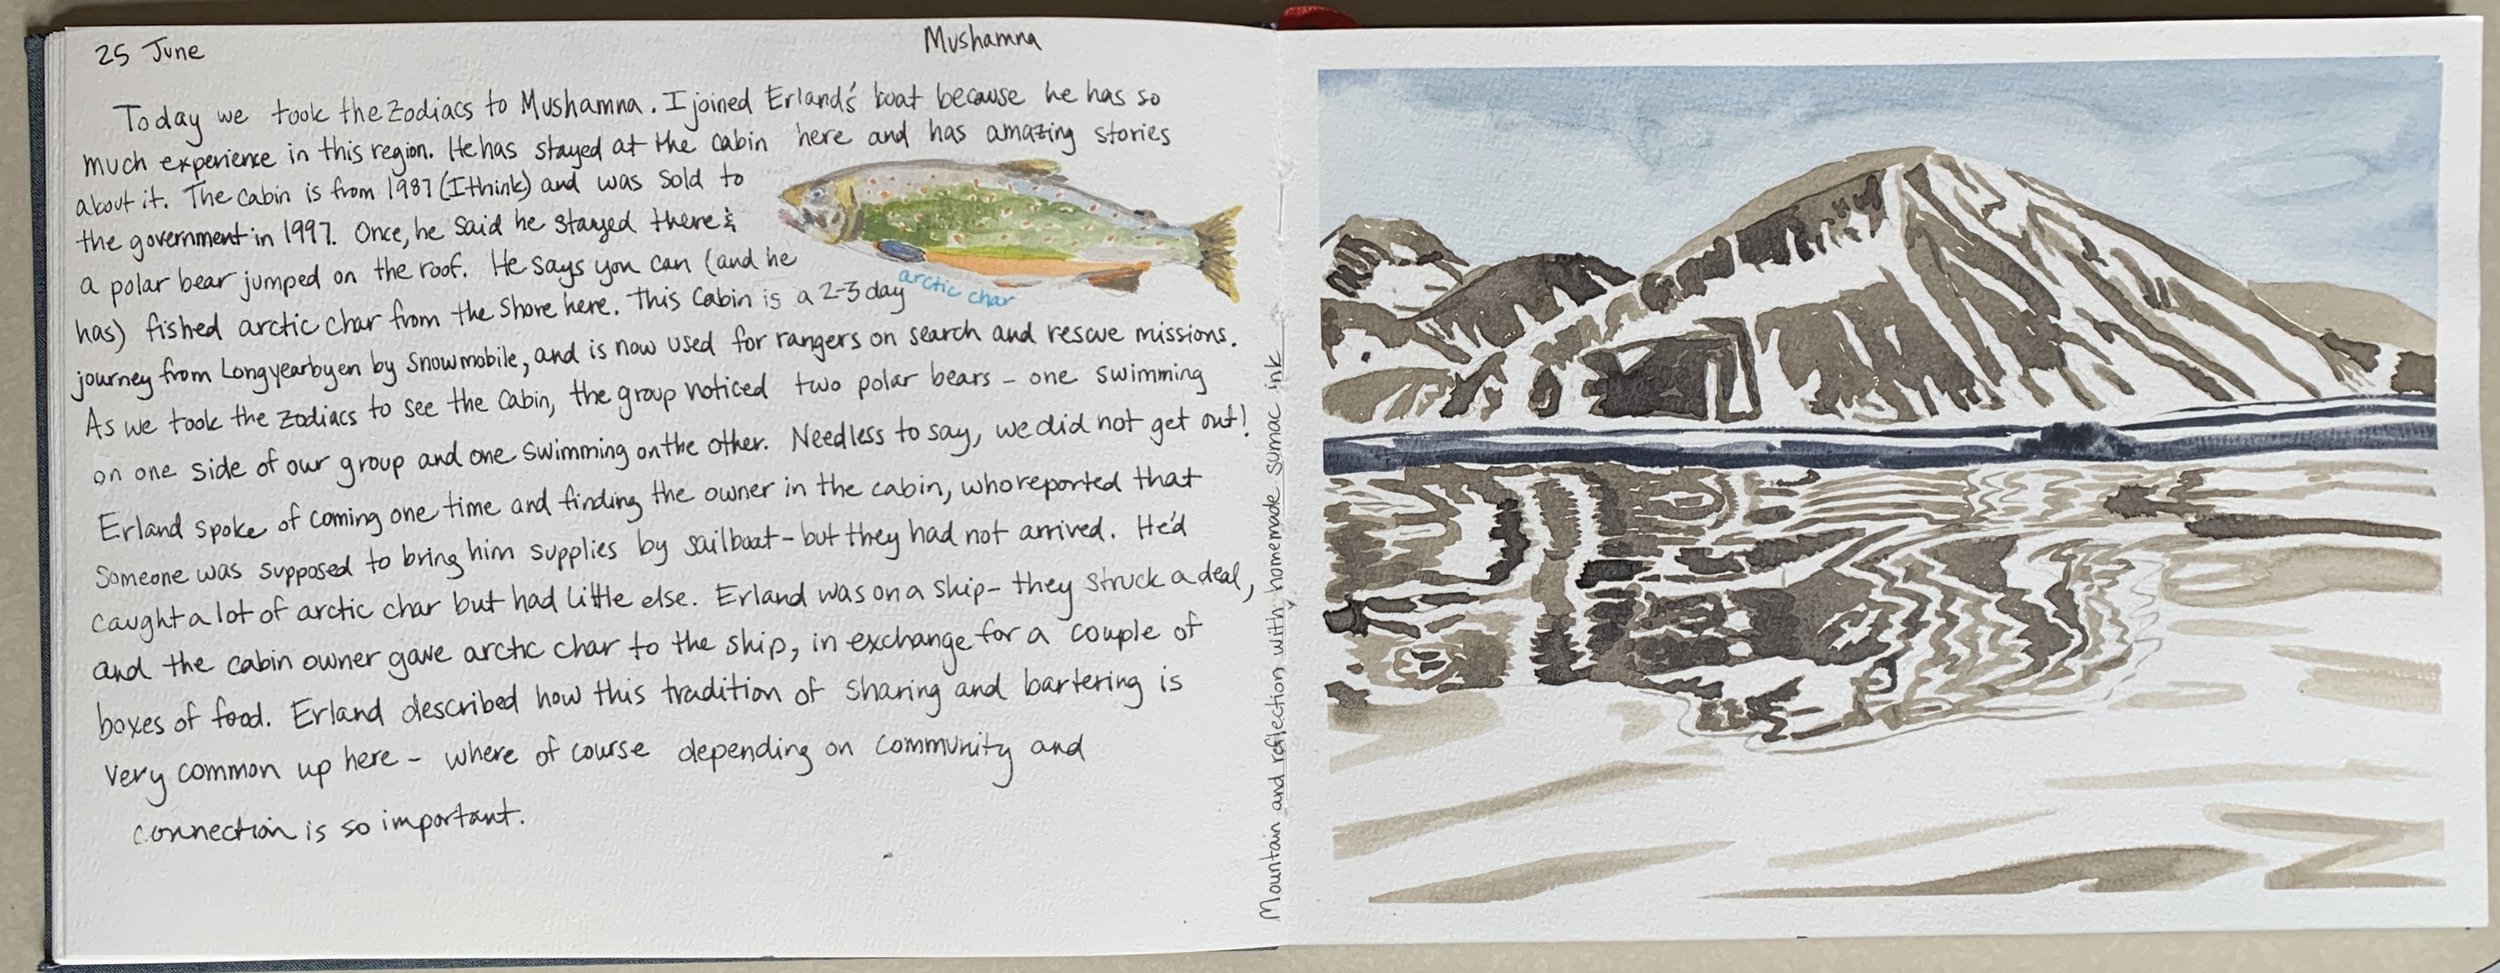 25 June
Mushamna
Today we took the Zodiacs to Mushamna. I joined Erland's boat because he has so
much experience in this region. He has stayed at the cabin here and has amazing stories
about it. The cabin is from 1987 (I think) and was sold to
the government in 1997. Once, he said he stayed there &
a polar bear jumped on the roof. He says you can (and he
has) fished arctic char from the shore here. This cabin is a 2-3 day
arctic char
journey from Longyearbyen by snowmobile, and is now used for rangers on search and rescue missions.
As we took the zodiacs to see the cabin, the group noticed two polar bears - one swimming
on one side of our group and one swimming on the other. Needless to say, we did not get out!
Erland spoke of coming one time and finding the owner in the cabin, who reported that
someone was supposed to bring him supplies by sailboat - but they had not arrived. He'd
caught a lot of arctic char but had little else. Erland was on a ship - they struck a deal,
and the cabin owner gave arctic char to the ship, in exchange for a couple of
boxes of food. Erland described how this tradition of sharing and bartering is
very common up here - where of course depending on community and
connection is so important.
Mountain and reflection with homemade sumac ink